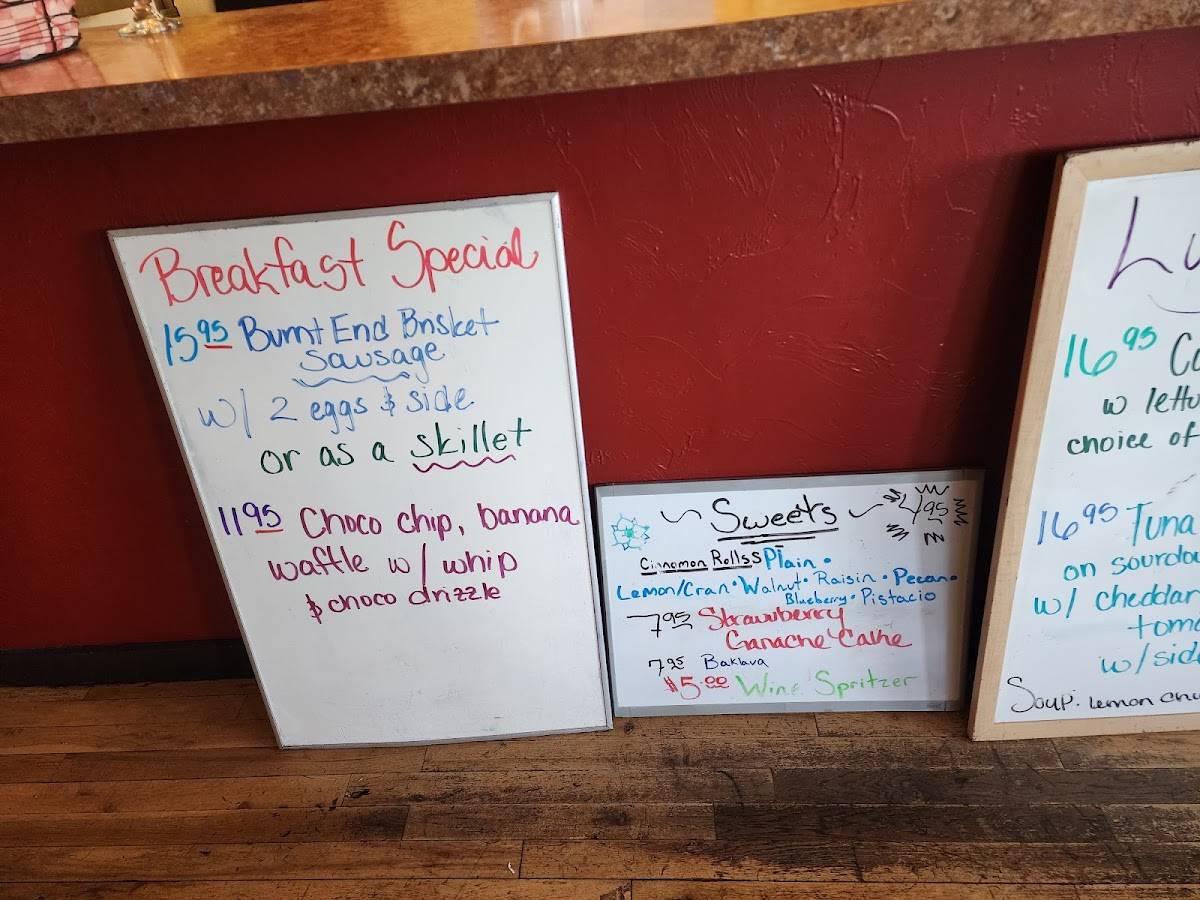 Breakfast Special
15.95 Burnt End Brisket
Sausage
w/ 2 eggs & side
or as a skillet
11.95 Choco chip, banana
waffle w/ whip
& choco drizzle
Sweets 4.95
Cinnamon Rollss Plain •
Lemon/Cran • Walnut • Raisin • Pecan •
Blueberry • Pistacio
7.95 Strawberry
Ganache Cake
7.95 Baklava
$5.00 Wine Spritzer
16.95
w lettu
choice of
16.95 Tuna
on sourdou
w/ cheddar
toma
w/ side
Soup: Lemon